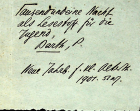 Tausendundeine Nacht
als Lesestoff für die
Jugend,
Barth, P.
Neue Jahrb. f.
1901.